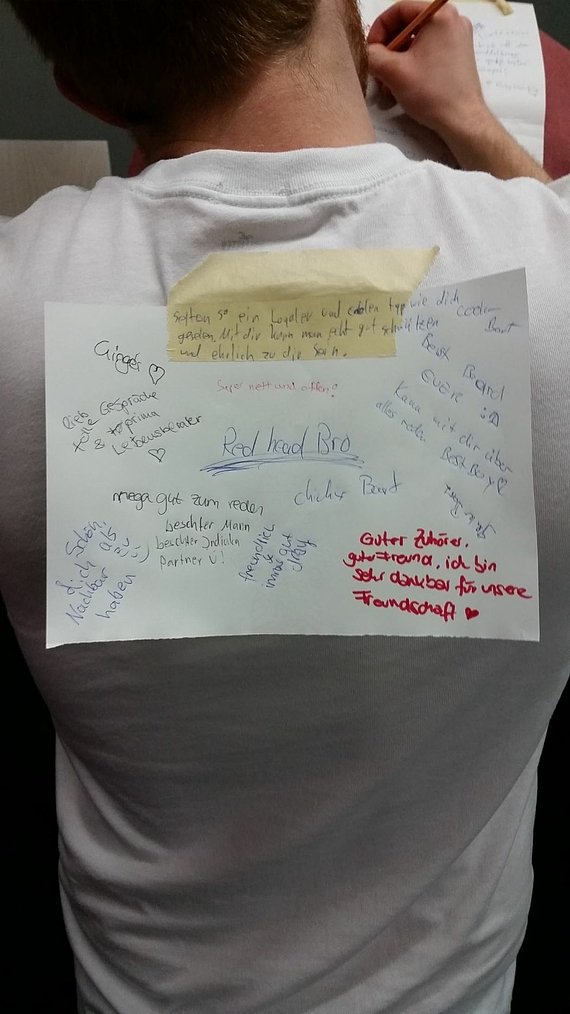 so ein Loyaler und typ wie dich
gesehen. Mit dir kann man echt gut
und ehrlich zu dir sein.
cooler
Bart
Ginger ♡
Super nett und offen!
Best Beard
EVER :D
liebe Gespräche
tolle & prima
Lebensberater
♡
Kann mit dir über
alles reden
Best Boy ♡
Red head Bro
mega gut zum reden
chicker Bart
beschter Mann
beschter
partner Ü!
Schön,
dich als
Nachbar
haben
freundlich
&
immer gut
drauf
Guter Zuhörer,
guter Freund, ich bin
sehr dankbar für unsere
Freundschaft ♥